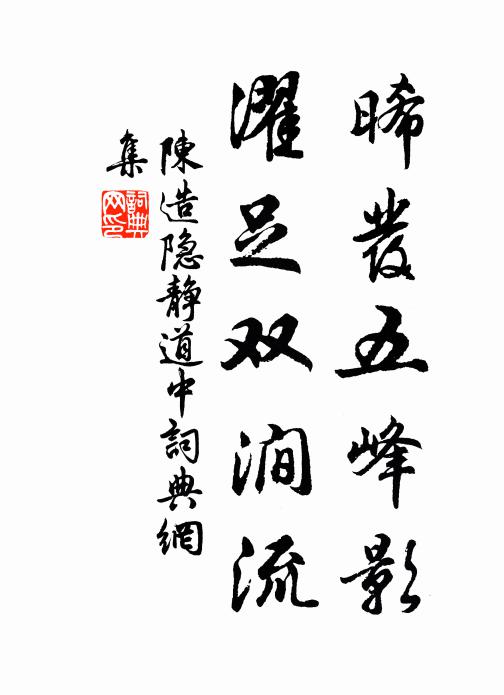 晞發五峰影
濯足双涧流
陳造隐静道中詞典網
集
詞典网印